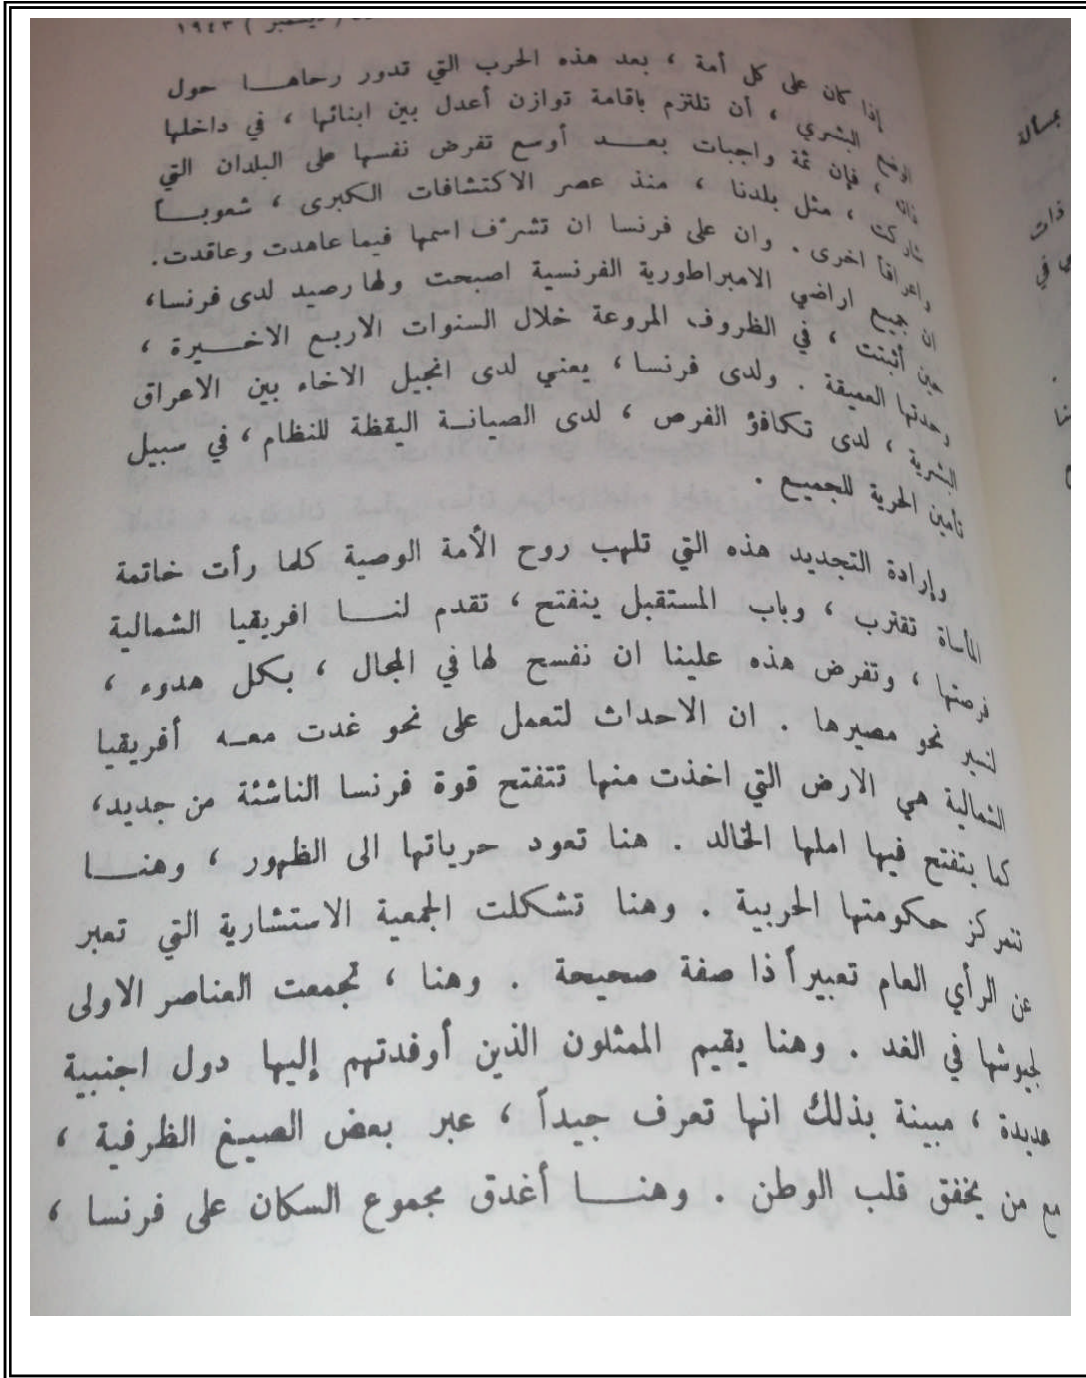 ( ديسمبر ) ١٩٤٣
إذا كان على كل أمة ، بعد هذه الحرب التي تدور رحاهـا حول
الوضع البشري ، أن تلتزم باقامة توازن أعدل بين ابنائها ، في داخلها
ذاته ، فإن ثمة واجبات بعـد أوسع تفرض نفسها على البلدان التي
شاركت ، مثل بلدنا ، منذ عصر الاكتشافات الكبرى ، شعوبـاً
واعراقاً اخرى . وان على فرنسا ان تشرّف اسمها فيما عاهدت وعاقدت.
ان جميع اراضي الامبراطورية الفرنسية اصبحت ولها رصيد لدى فرنسا،
حين أثبتت ، في الظروف المروعة خلال السنوات الاربع الاخـيرة ،
وحدتها العميقة . ولدى فرنسا ، يعني لدى انجيل الاخاء بين الاعراق
البشرية ، لدى تكافؤ الفرص ، لدى الصيانـة اليقظة للنظام ، في سبيل
تأمين الحرية للجميع .
وإرادة التجديد هذه التي تلهب روح الأمة الوصية كلما رأت خاتمة
المأساة تقترب ، وباب المستقبل ينفتح ، تقدم لنـا افريقيا الشمالية
فرصتها ، وتفرض هذه علينا ان نفسح لها في المجال ، بكل هدوء ،
لتسير نحو مصيرها . ان الاحداث لتعمل على نحو غدت معـه أفريقيا
الشمالية هي الارض التي اخذت منها تتفتح قوة فرنسا الناشئة من جديد،
كما يتفتح فيها املها الخالد . هنا تعود حرياتها الى الظهور ، وهنـا
تتمركز حكومتها الحربية . وهنا تشكلت الجمعية الاستشارية التي تعبر
عن الرأي العام تعبيراً ذا صفة صحيحة . وهنا ، تجمعت العناصر الاولى
لجيوشها في الغد . وهنا يقيم الممثلون الذين أوفدتهم إليها دول اجنبية
عديدة ، مبينة بذلك انها تعرف جيداً ، عبر بعض الصيغ الظرفية ،
مع من يخفق قلب الوطن . وهنـا أغدق مجموع السكان على فرنسا ،
بمسألة
ذات
في